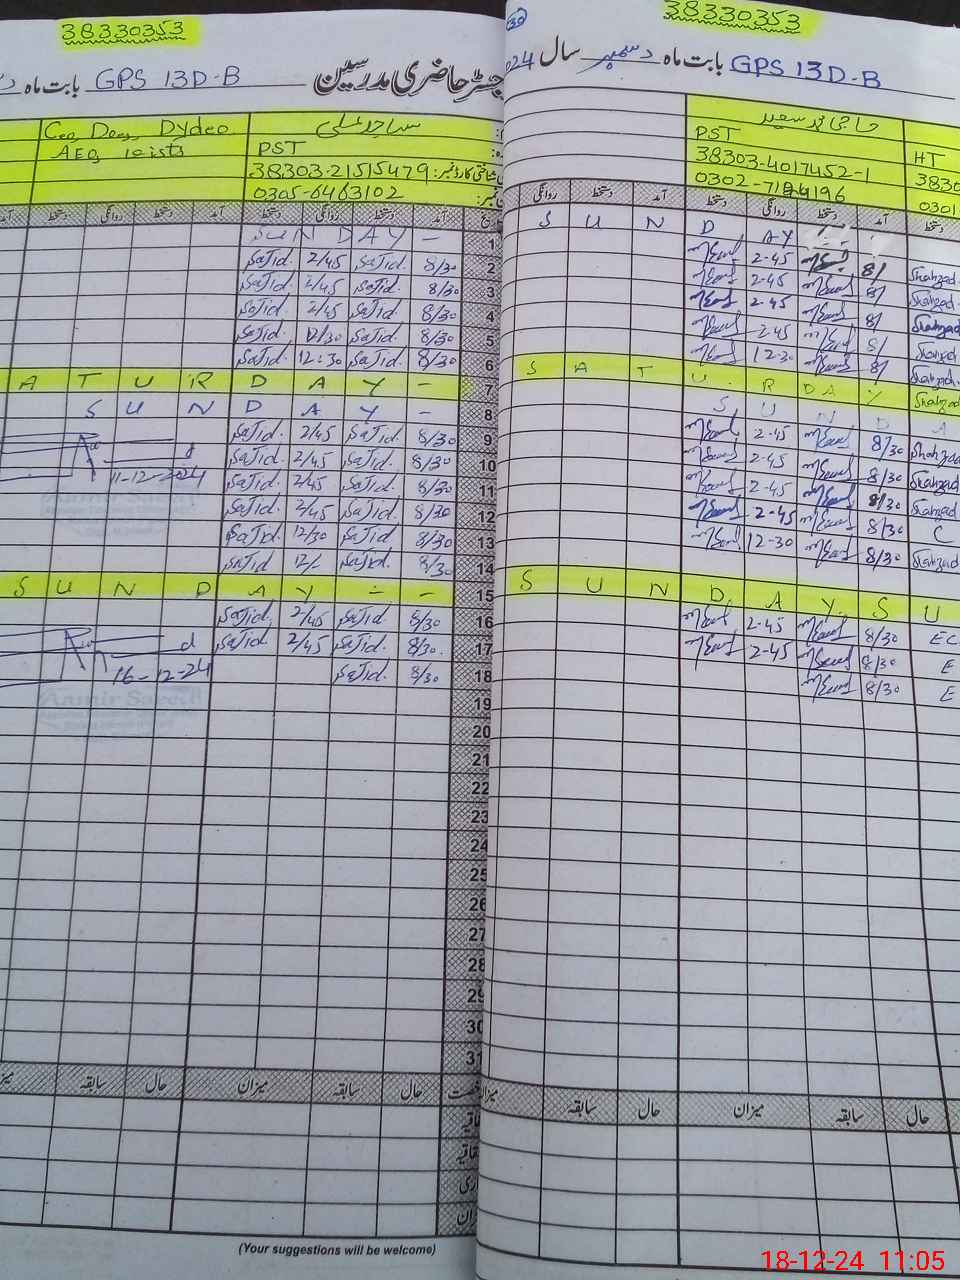 38330353
رجسٹر حاضری مدرسین بابت ماہ GPS 13D-B
ساجد علی
PST
شناختی کارڈ نمبر: 38303-2151547-9
0305-6463102
Ceo Deo, Dydeo
AEO Visits
آمد دستخط روانگی دستخط آمد دستخط روانگی دستخط
1 SUNDAY -
2 8/30 Sajid. 2/45 Sajid.
3 8/30 Sajid. 2/45 Sajid.
4 8/30 Sajid. 2/45 Sajid.
5 8/30 Sajid. 12/30 Sajid.
6 8/30 Sajid. 12:30 Sajid.
7 ATURDAY -
8 SUNDAY -
9 8/30 Sajid. 2/45 Sajid.
10 8/30 Sajid. 2/45 Sajid.
11 8/30 Sajid. 2/45 Sajid.
11-12-2024
12 8/30 Sajid. 2/45 Sajid.
13 8/30 Sajid. 12/30 Sajid.
14 8/30 Sajid. 12/- Sajid
15 SUNDAY - -
16 8/30 Sajid. 2/45 Sajid.
17 8/30 Sajid. 2/45 Sajid.
16-12-24
18 8/30 Sajid.
Aamir Saeed
19
20
21
22
23
24
25
26
27
28
29
30
31
حال سابقہ میزان حال سابقہ
(Your suggestions will be welcome)
38330353
GPS 13D-B بابت ماہ دسمبر سال 2024
حاجی محمد سعید
PST
38303-4017452-1
0302-7194196
HT
3830
0301
آمد دستخط روانگی دستخط آمد دستخط روانگی
SUNDAY
8/ 2-45 Shahzad
8/ 2-45 Shahzad
8/ 2-45 Shahzad
8/ 2-45 Shahzad
8/ 12-30 Shahzad
SATURDAY Shahzad
SUNDA
8/30 2-45 Shahzad
8/30 2-45 Shahzad
8/30 2-45 Shahzad
8/30 2-45 C
8/30 12-30 Shahzad
SUNDAY SU
8/30 2-45 EC
8/30 2-45 E
8/30 E
حال سابقہ میزان حال سابقہ
18-12-24 11:05